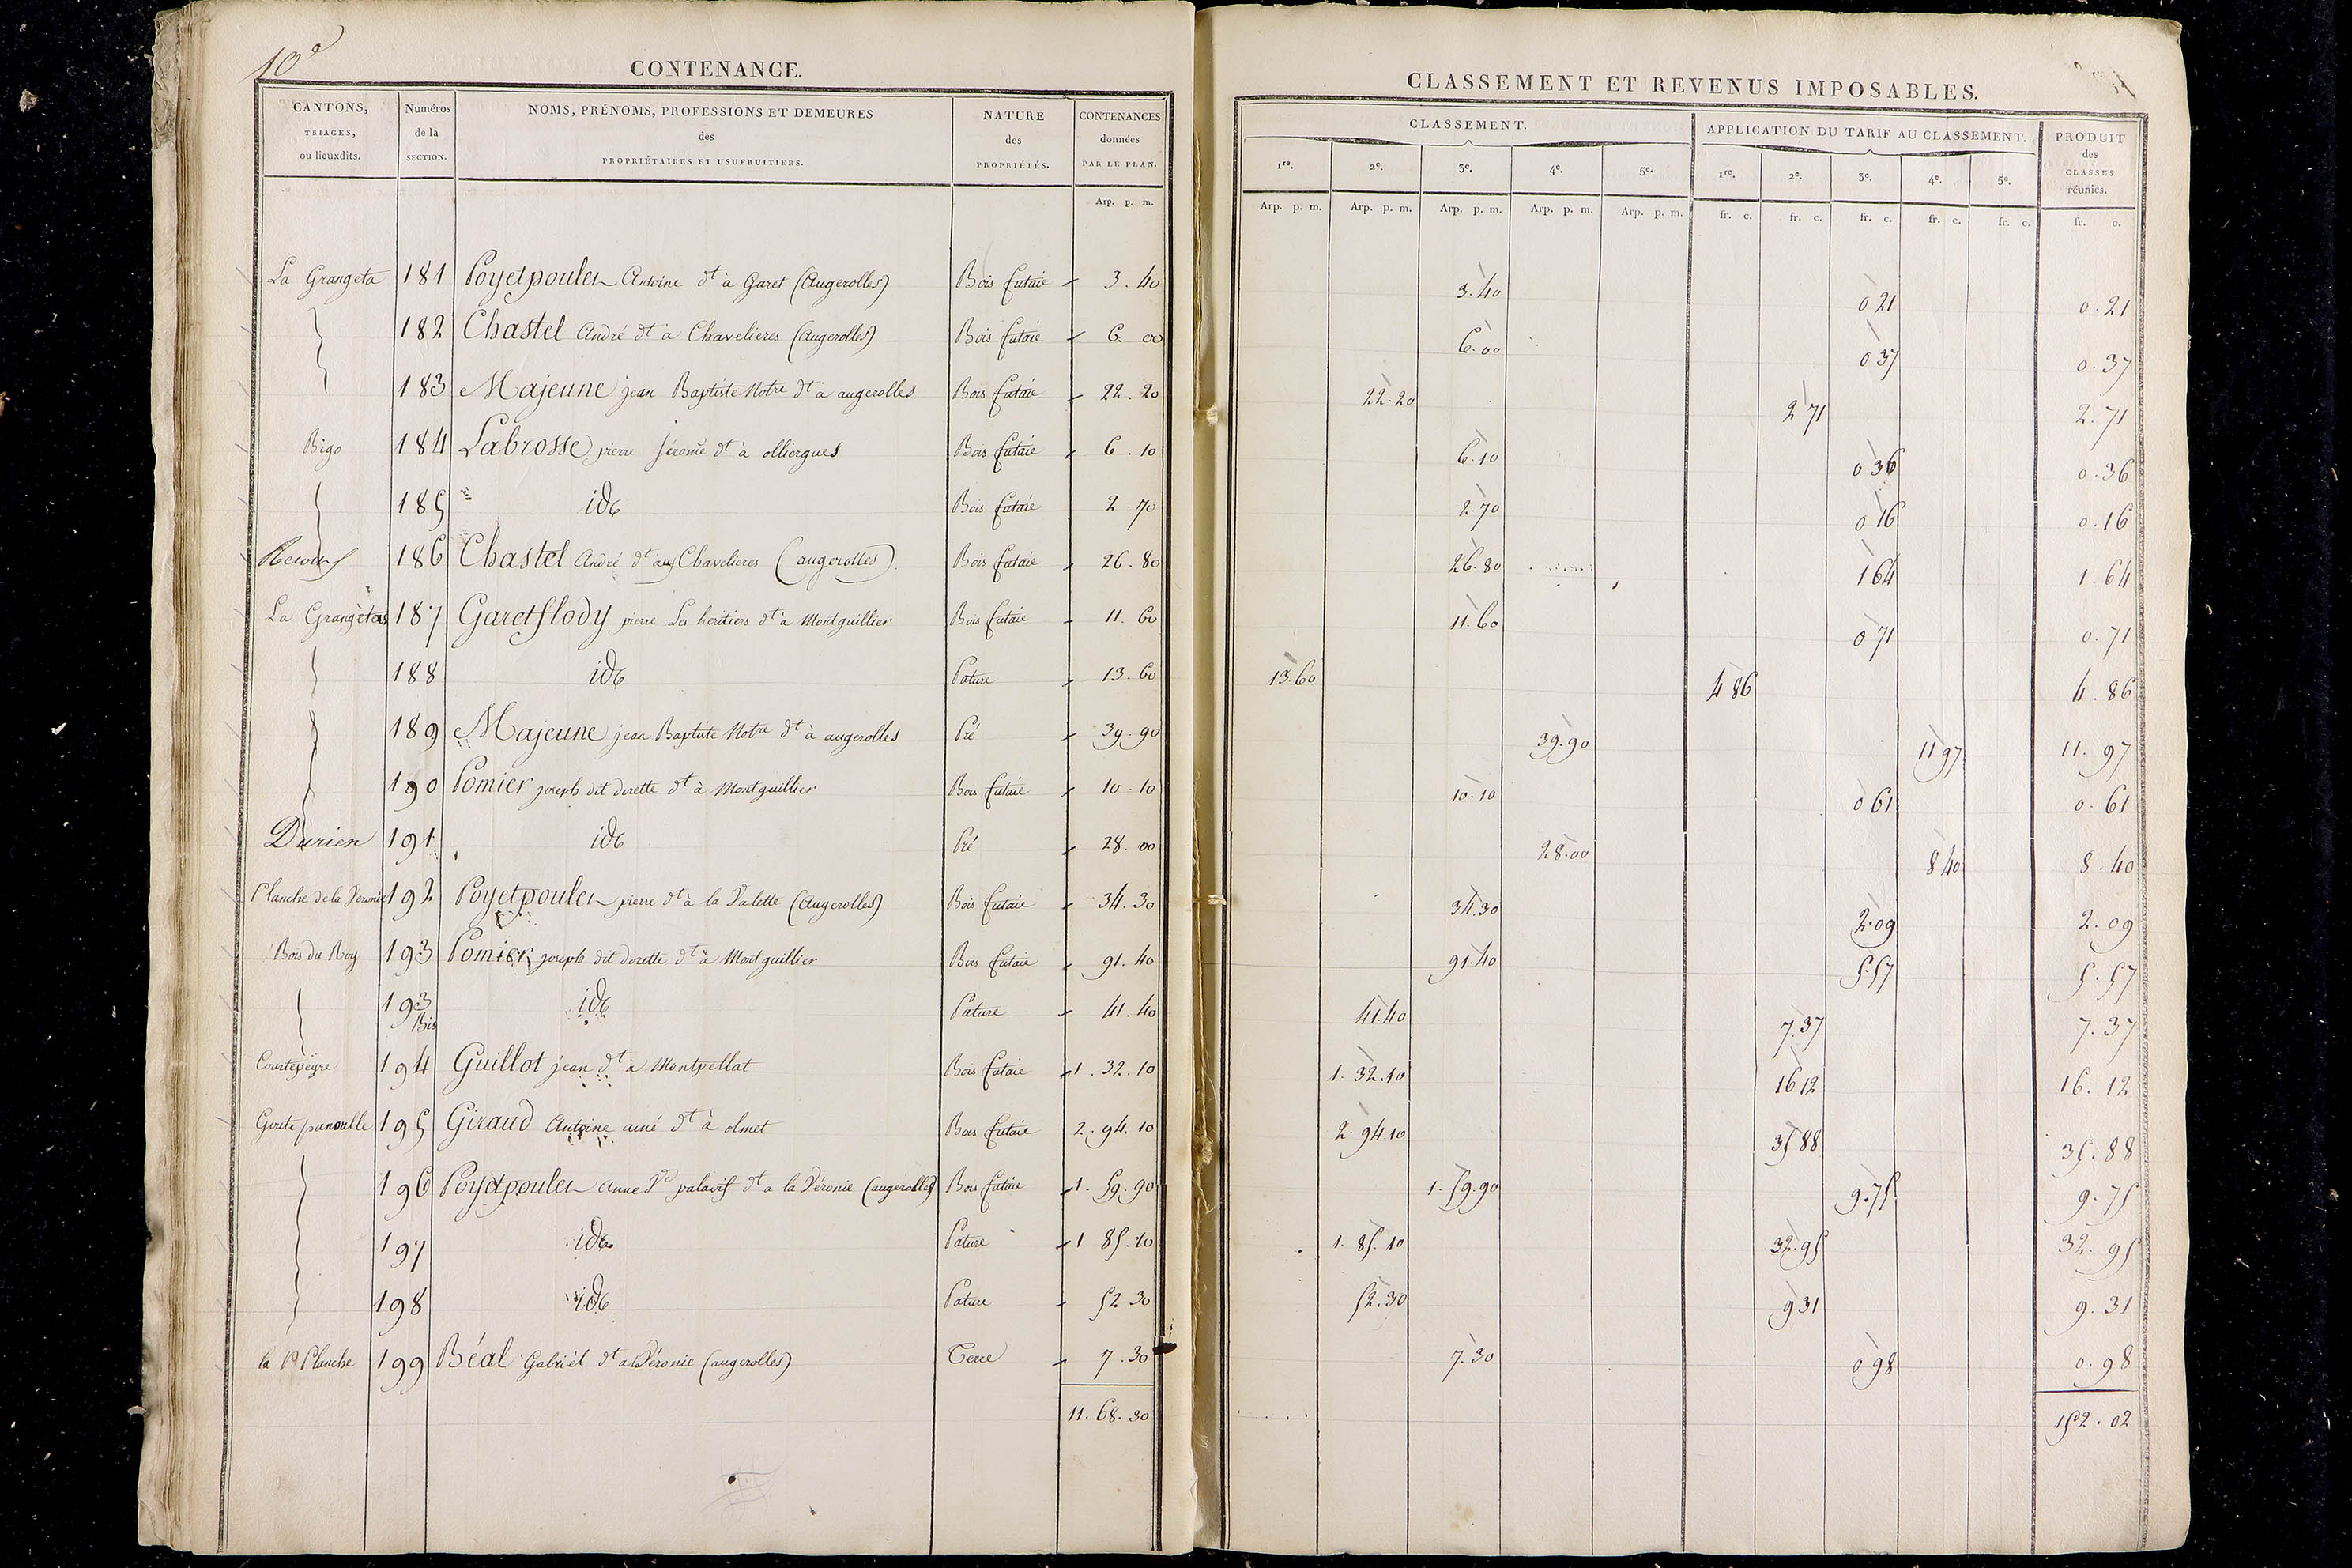 10e
CONTENANCE.
CANTONS, TRIAGES, ou lieuxdits. Numéros de la SECTION. NOMS, PRÉNOMS, PROFESSIONS ET DEMEURES des PROPRIÉTAIRES ET USUFRUITIERS. NATURE des PROPRIÉTÉS. CONTENANCES données PAR LE PLAN.
Arp. p. m.
La Grangeta 181 Poyetpoulen Antoine dt à Garet (Augerolles) Bois futaie 3. 40
182 Chastel André dt à Chavelieres (Augerolles) Bois futaie 6. 00
183 Majeune jean Baptiste Notre dt à augerolles Bois futaie 22. 20
Bigo 184 Labrosse pierre Jérome dt à olliergues Bois futaie 6. 10
185 ide Bois futaie 2. 70
186 Chastel André dt aux Chavelieres (augerolles) Bois futaie 26. 80
La Grangetas 187 Garetflody pierre Les heritiers dt à Montguillier Bois futaie 11. 60
188 ide Pature 13. 60
189 Majeune jean Baptiste Notre dt à augerolles Pré 39. 90
190 Pomier joseph dit dorette dt à Montguillier Bois futaie 10. 10
Durien 191 ide Pré 28. 00
Planche de la Veronie 192 Poyetpoulen pierre dt à la Valette (Augerolles) Bois futaie 34. 30
Bois du Roy 193 Pomier joseph dit dorette dt à Montguillier Bois futaie 91. 40
193 Bis ide Pature 41. 40
Courtepeyre 194 Guillot jean dt à Montpellat Bois futaie 1. 32. 10
Goute panoulle 195 Giraud Antoine ainé dt à olmet Bois futaie 2. 94. 10
196 Poyetpoulen Anne Ve palavif dt a la Véronie (augerolles) Bois futaie 1. 59. 90
197 ide Pature 1 85. 10
198 ide Pature 52 30
la Planche 199 Béal Gabriël dt a Véronie (augerolles) Terre 7. 30
11. 68. 30
CLASSEMENT ET REVENUS IMPOSABLES.
CLASSEMENT. APPLICATION DU TARIF AU CLASSEMENT. PRODUIT des CLASSES réunies.
1re. 2e. 3e. 4e. 5e. 1re. 2e. 3e. 4e. 5e.
Arp. p. m. Arp. p. m. Arp. p. m. Arp. p. m. Arp. p. m. fr. c. fr. c. fr. c. fr. c. fr. c. fr. c.
3. 40 0 21 0. 21
6. 00 0 37 0. 37
22. 20 2 71 2. 71
6. 10 0 36 0. 36
2. 70 0 16 0. 16
26. 80 1 64 1. 64
11. 60 0 71 0. 71
13. 60 4 86 4. 86
39. 90 11 97 11. 97
10. 10 0 61 0. 61
28. 00 8 40 8. 40
34. 30 2. 09 2. 09
91. 40 5. 57 5. 57
41. 40 7. 37 7. 37
1. 32. 10 16 12 16. 12
2. 94. 10 35 88 35. 88
1. 59. 90 9. 75 9. 75
1. 85. 10 32. 95 32. 95
52. 30 9 31 9. 31
7. 30 0 98 0. 98
152. 02